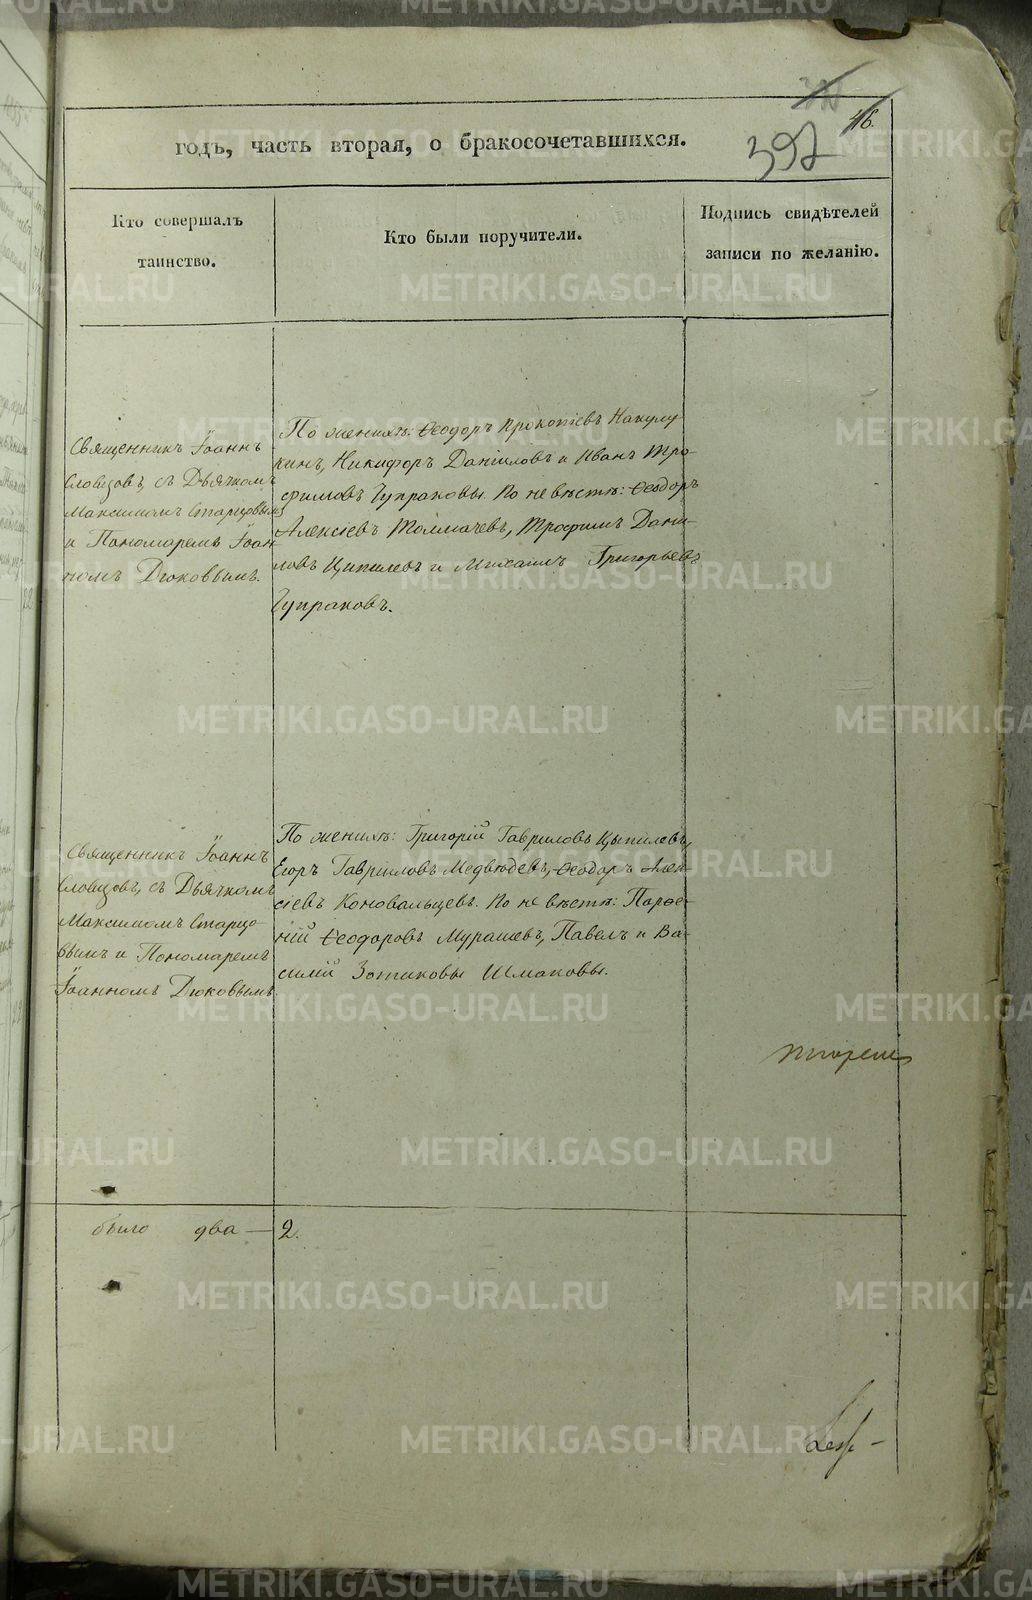 46.
397
годъ, часть вторая, о бракосочетавшихся.
Кто совершалъ
таинство.
Кто были поручители.
Подпись свидѣтелей
записи по желанію.
Священникъ Іоаннъ
Словцовъ, съ Дьячкомъ
Максимомъ Старцовымъ
и Пономаремъ Іоан
номъ Дюковымъ.
По женихѣ: Ѳеодоръ Прокопіевъ Накулу
кинъ, Никифоръ Даніиловъ и Иванъ Тро-
фимовъ Чупраковы. По невѣстѣ: Ѳеодоръ
Алексіевъ Толмачевъ, Трофимъ Дани-
ловъ Ципилевъ и Михаилъ Григорьевъ
Чупраковъ.
Священникъ Іоаннъ
Словцовъ, съ Дьячкомъ
Максимомъ Старцо-
вымъ и Пономаремъ
Іоанномъ Дюковымъ.
По женихѣ: Григорій Гавриловъ Цыпилевъ,
Егоръ Гавриловъ Медвѣдевъ, Ѳеодоръ Алек
сіевъ Коновальцевъ. По невѣстѣ: Парѳе-
ній Ѳеодоровъ Мурашевъ, Павелъ и Ва-
силій Зотиковы Шмаковы.
было два — 2.
METRIKI.GASO-URAL.RU